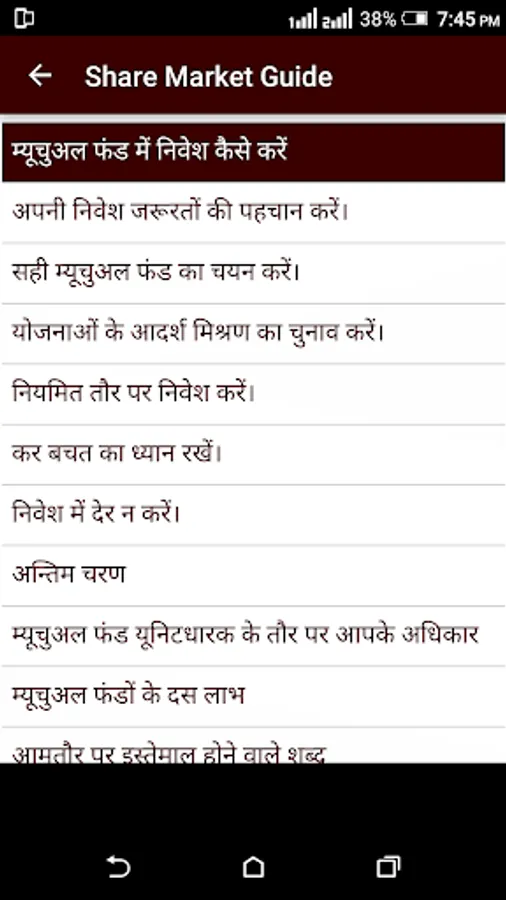 38% 7:45 PM
Share Market Guide
म्यूचुअल फंड में निवेश कैसे करें
अपनी निवेश जरूरतों की पहचान करें।
सही म्यूचुअल फंड का चयन करें।
योजनाओं के आदर्श मिश्रण का चुनाव करें।
नियमित तौर पर निवेश करें।
कर बचत का ध्यान रखें।
निवेश में देर न करें।
अन्तिम चरण
म्यूचुअल फंड यूनिटधारक के तौर पर आपके अधिकार
म्यूचुअल फंडों के दस लाभ
आमतौर पर इस्तेमाल होने वाले शब्द